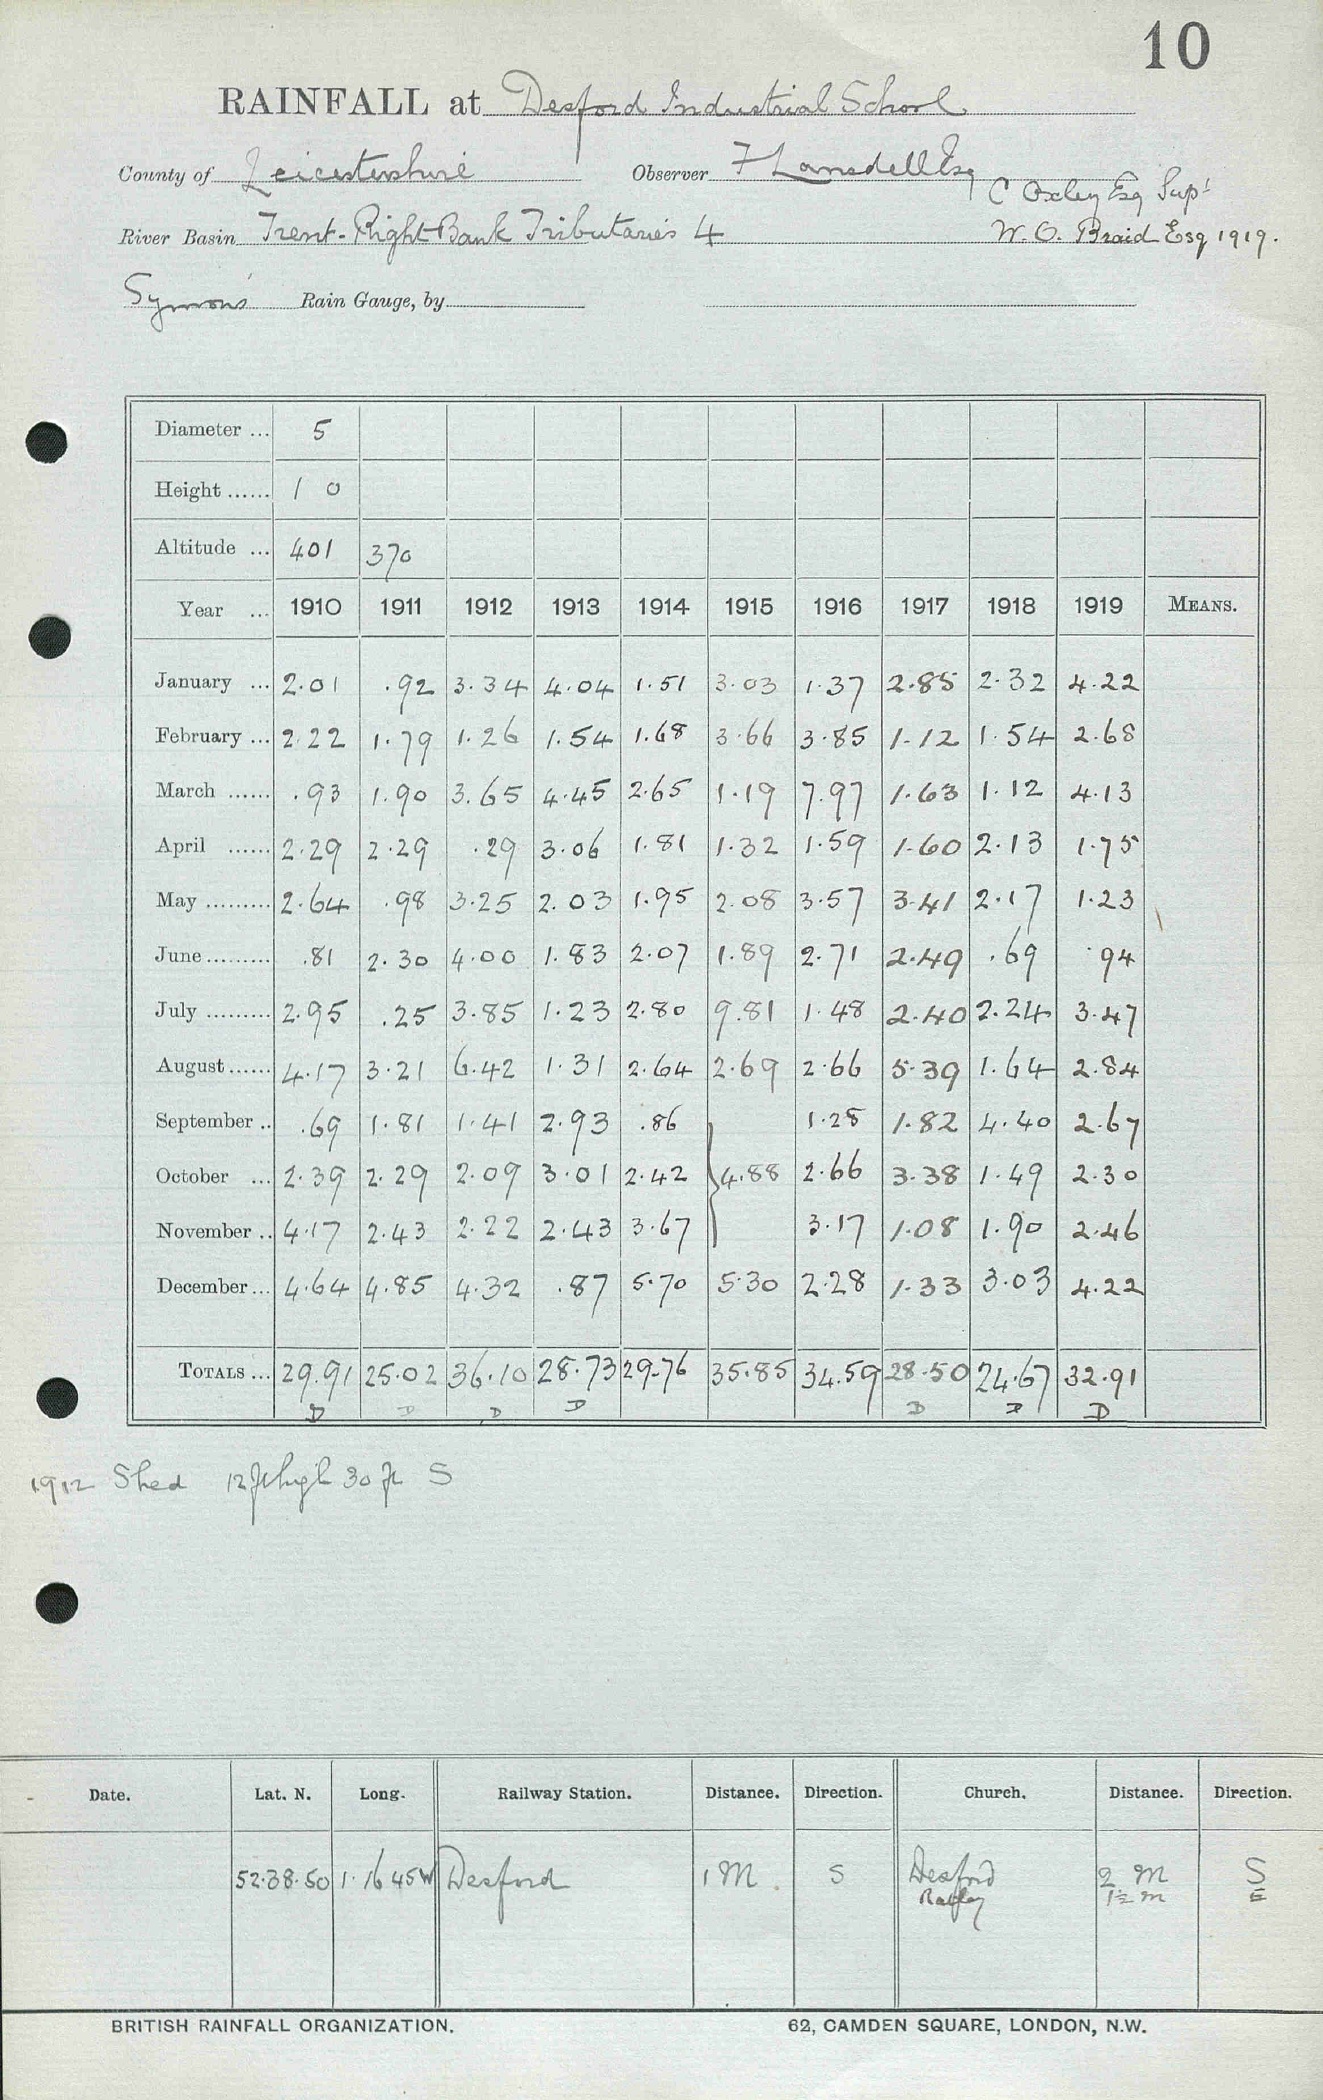 10
RAINFALL at Desford Industrial School
County of Leicestershire Observer F Lansdell Esq
C Oxley Esq Supt
River Basin Trent-Right Bank Tributaries 4 W. O. Braid Esq 1919.
Symons' Rain Gauge, by
Diameter ... 5
Height ...... 1 0
Altitude ... 401 370
Year ... 1910 1911 1912 1913 1914 1915 1916 1917 1918 1919 MEANS.
January ... 2.01 .92 3.34 4.04 1.51 3.03 1.37 2.85 2.32 4.22
February ... 2.22 1.79 1.26 1.54 1.68 3.66 3.85 1.12 1.54 2.68
March ...... .93 1.90 3.65 4.45 2.65 1.19 7.97 1.63 1.12 4.13
April ...... 2.29 2.29 .29 3.06 1.81 1.32 1.59 1.60 2.13 1.75
May ......... 2.64 .98 3.25 2.03 1.95 2.08 3.57 3.41 2.17 1.23
June ......... .81 2.30 4.00 1.83 2.07 1.89 2.71 2.49 .69 .94
July ......... 2.95 .25 3.85 1.23 2.80 9.81 1.48 2.40 2.24 3.47
August ...... 4.17 3.21 6.42 1.31 2.64 2.69 2.66 5.39 1.64 2.84
September .. .69 1.81 1.41 2.93 .86 1.28 1.82 4.40 2.67
October ... 2.39 2.29 2.09 3.01 2.42 4.88 2.66 3.38 1.49 2.30
November .. 4.17 2.43 2.22 2.43 3.67 3.17 1.08 1.90 2.46
December ... 4.64 4.85 4.32 .87 5.70 5.30 2.28 1.33 3.03 4.22
TOTALS ... 29.91 25.02 36.10 28.73 29.76 35.85 34.59 28.50 24.67 32.91
D D D D D D D
1912 Shed 12 ft high 30 ft S
Date. Lat. N. Long. Railway Station. Distance. Direction. Church. Distance. Direction.
52.38.50 1.16 45W Desford 1 M S Desford 2 M S
Ratby 1½ m E
BRITISH RAINFALL ORGANIZATION. 62, CAMDEN SQUARE, LONDON, N.W.